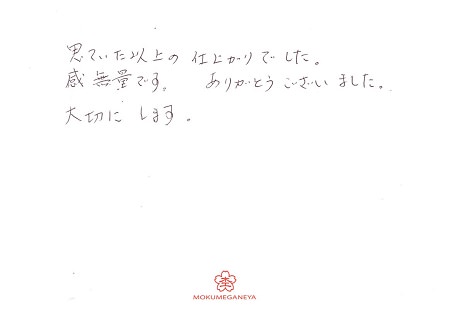 思ていた以上の 仕上がりでした。
感無量です。 ありがとうございました。
大切に します。
MOKUMEGANEYA